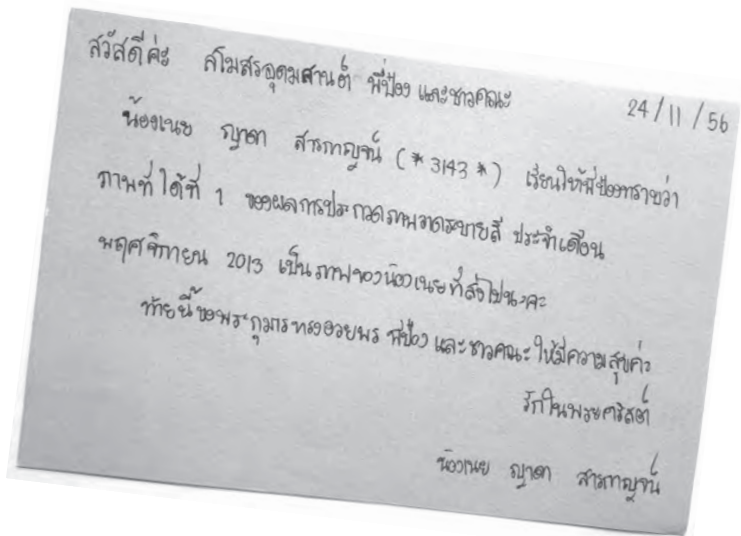 สวัสดีค่ะ สโมสรอุดมสานต์ พี่ป๋อง และชาวคณะ 24/11/56
น้องเนย ญาดา สารกาญจน์ (*3143*) เรียนให้พี่ป๋องทราบว่า
ภาพที่ได้ที่ 1 ของผลการประกวดภาพวาดระบายสี ประจำเดือน
พฤศจิกายน 2013 เป็นภาพของน้องเนยที่ส่งไปนะคะ
ท้ายนี้ขอพระกุมารทรงอวยพร พี่ป๋อง และชาวคณะ ให้มีความสุขค่ะ
รักในพระคริสต์
น้องเนย ญาดา สารกาญจน์